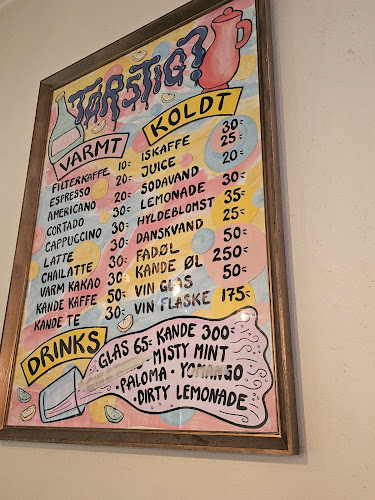 TØRSTIG?
VARMT
FILTERKAFFE 10:-
ESPRESSO 20:-
AMERICANO 20:-
CORTADO 30:-
CAPPUCCINO 30:-
LATTE 30:-
CHAILATTE 30:-
VARM KAKAO 30:-
KANDE KAFFE 50:-
KANDE TE 30:-
KOLDT
ISKAFFE 30:-
JUICE 25:-
SODAVAND 20:-
LEMONADE 30:-
HYLDEBLOMST 35:-
DANSKVAND 25:-
FADØL 50:-
KANDE ØL 250:-
VIN GLAS 50:-
VIN FLASKE 175:-
DRINKS
GLAS 65:- KANDE 300:-
· MISTY MINT
· PALOMA · YOMANGO
· DIRTY LEMONADE